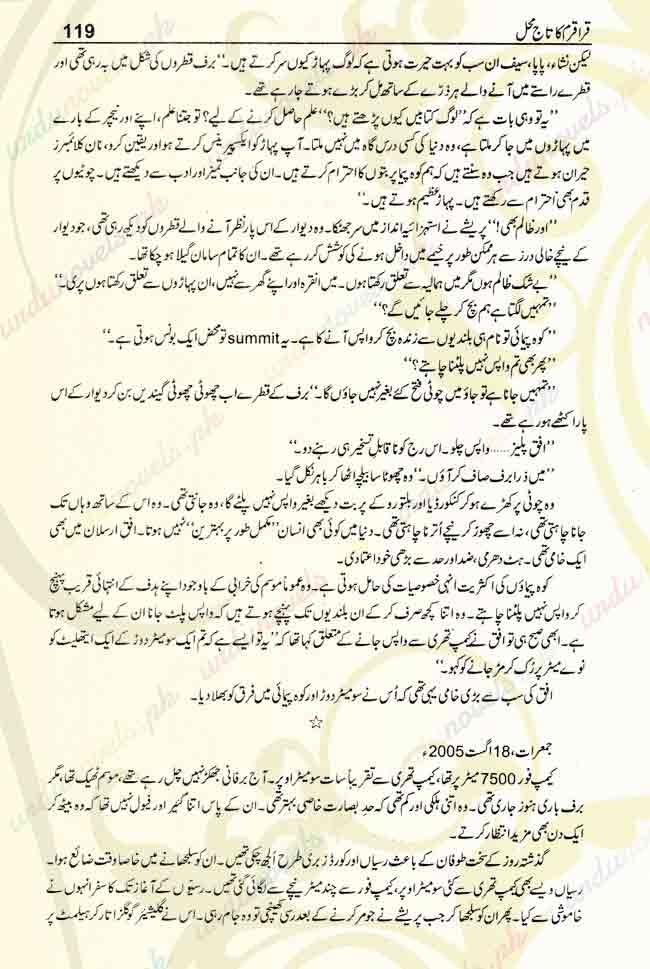 قراقرم کا تاج محل
119
لیکن نشاء، پاپا، سیف ان سب کو بہت حیرت ہوتی ہے کہ لوگ پہاڑ کیوں سر کرتے ہیں۔“ برف قطروں کی شکل میں بہہ رہی تھی اور
قطرے راستے میں آنے والے ہر ذرے کے ساتھ مل کر بڑے ہوتے جا رہے تھے۔
”یہ تو وہی بات ہے کہ ”لوگ کتابیں کیوں پڑھتے ہیں؟“ علم حاصل کرنے کے لیے؟ تو جتنا علم، اپنے اور نیچر کے بارے
میں پہاڑوں میں جا کر ملتا ہے، وہ دنیا کی کسی درس گاہ میں نہیں ملتا۔ آپ پہاڑ کو ایکسپیرینس کرتے ہو اور یقین کرو، نان کلائمبرز
حیران ہوتے ہیں جب وہ سنتے ہیں کہ ہم کوہ پیما پربتوں کا احترام کرتے ہیں۔ ان کی جانب تمیز اور ادب سے دیکھتے ہیں۔ چوٹیوں پر
قدم بھی احترام سے رکھتے ہیں۔ پہاڑ عظیم ہوتے ہیں۔“
”اور ظالم بھی!“ پریشے نے استہزائیہ انداز میں سر جھٹکا۔ وہ دیوار کے اس پار نظر آنے والے قطروں کو دیکھ رہی تھی، جو دیوار
کے نیچے خالی درز سے ہر ممکن طور پر خیمے میں داخل ہونے کی کوشش کر رہے تھے۔ ان کا تمام سامان گیلا ہو چکا تھا۔
”بے شک ظالم ہوں مگر میں ہمالیہ سے تعلق رکھتا ہوں۔ میں انقرہ اور اپنے گھر سے نہیں، ان پہاڑوں سے تعلق رکھتا ہوں پری۔“
”تمہیں لگتا ہے ہم بچ کر چلے جائیں گے؟“
”کوہ پیمائی تو نام ہی بلندیوں سے زندہ بچ کر واپس آنے کا ہے۔ یہ summit تو محض ایک بونس ہوتی ہے۔“
”پھر بھی تم واپس نہیں پلٹنا چاہتے؟“
”تمہیں جانا ہے تو جاؤ میں چوٹی فتح کئے بغیر نہیں جاؤں گا۔“ برف کے قطرے اب چھوٹی چھوٹی گیندیں بن کر دیوار کے اس
پار اکٹھے ہو رہے تھے۔
”افق پلیز...... واپس چلو۔ اس رج کو ناقابلِ تسخیر ہی رہنے دو۔“
”میں ذرا برف صاف کر آؤں۔“ وہ چھوٹا سا بیلچہ اٹھا کر باہر نکل گیا۔
وہ چوٹی پر کھڑے ہو کر کنکورڈیا اور بلتورو کے پربت دیکھے بغیر واپس نہیں پلٹے گا، وہ جانتی تھی۔ وہ اس کے ساتھ وہاں تک
جانا چاہتی تھی، نہ اسے چھوڑ کر نیچے اُترنا چاہتی تھی۔ دنیا میں کوئی بھی انسان ”مکمل طور پر بہترین“ نہیں ہوتا۔ افق ارسلان میں بھی
ایک خامی تھی۔ ہٹ دھرمی، ضد اور حد سے بڑھی خود اعتمادی۔
کوہ پیماؤں کی اکثریت انہی خصوصیات کی حامل ہوتی ہے۔ وہ عموماً موسم کی خرابی کے باوجود اپنے ہدف کے انتہائی قریب پہنچ
کر واپس نہیں پلٹنا چاہتے۔ وہ اتنا کچھ صرف کر کے ان بلندیوں تک پہنچے ہوتے ہیں کہ واپس پلٹ جانا ان کے لیے مشکل ہوتا
ہے۔ ابھی صبح ہی تو افق نے کیمپ تھری سے واپس جانے کے متعلق کہا تھا کہ ”یہ تو ایسے ہے کہ تم ایک سو میٹر دوڑ کے ایک ایتھلیٹ کو
نوے میٹر پر رُک کر مڑ جانے کو کہو۔“
افق کی سب سے بڑی خامی یہی تھی کہ اُس نے سو میٹر دوڑ اور کوہ پیمائی میں فرق کو بھلا دیا۔
☆
جمعرات، 18 اگست 2005ء
کیمپ فور 7500 میٹر پر تھا، کیمپ تھری سے تقریباً سات سو میٹر اوپر۔ آج برفانی جھکڑ نہیں چل رہے تھے، موسم ٹھیک تھا، مگر
برف باری ہنوز جاری تھی۔ وہ اتنی ہلکی اور کم تھی کہ حدِ بصارت خاصی بہتر تھی۔ ان کے پاس اتنا گئیر اور فیول نہیں تھا کہ وہ بیٹھ کر
ایک دن بھی مزید انتظار کرتے۔
گذشتہ روز کے سخت طوفان کے باعث رسیاں اور کورڈز بری طرح اُلجھ چکی تھیں۔ ان کو سلجھانے میں خاصا وقت ضائع ہوا۔
رسیاں ویسے بھی کیمپ تھری سے کئی سو میٹر اوپر، کیمپ فور سے چند میٹر نیچے سے لگائی گئی تھیں۔ رسیوں کے آغاز تک کا سفر انہوں نے
خاموشی سے کیا۔ پھر ان کو سلجھا کر جب پریشے نے جومر کرنے کے بعد رسی کھینچی تو وہ جام رہی۔ اس نے گلیشیئر گوگلز اتار کر ہیلمٹ پر
urdunovels.pk